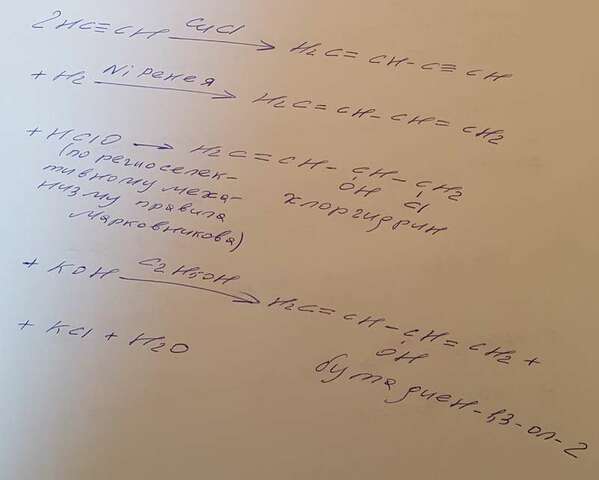 2HC≡CH CuCl → H₂C=CH-C≡CH
+ H₂ Ni Ренея → H₂C=CH-CH=CH₂
+ HClO → H₂C=CH-CH-CH₂
OH Cl
(по региоселек-
тивному меха-
низму правила
Марковникова)
хлоргидрин
+ KOH C₂H₅OH → H₂C=CH-CH=CH₂ +
OH
+ KCl + H₂O
бутадиен-1,3-ол-2